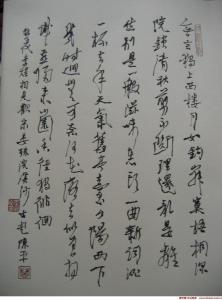 無言獨上西樓月如鉤寂寞梧桐深
院鎖清秋剪不斷理還亂是離
愁別是一般滋味在心頭一曲新詞酒
一杯去年天氣舊亭臺夕陽西下
幾時迴無可奈何花落去似曾相
識燕歸來小園香徑獨徘徊
李煜相見歡宋晏殊浣溪沙古越陳平